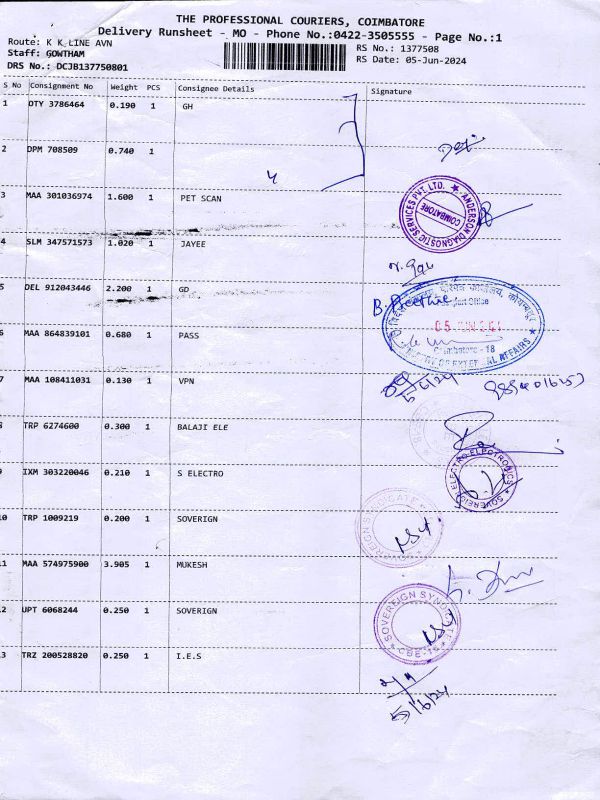 THE PROFESSIONAL COURIERS, COIMBATORE
Delivery Runsheet - MO - Phone No.:0422-3505555 - Page No.:1
Route: K K LINE AVN
RS No.: 1377508
Staff: GOWTHAM
RS Date: 05-Jun-2024
DRS No.: DCJB137750801
S No Consignment No Weight PCS Consignee Details Signature
1 OTY 3786464 0.190 1 GH
2 DPM 708509 0.740 1
3 MAA 301036974 1.600 1 PET SCAN
ANDERSON DIAGNOSTIC SERVICES PVT. LTD. ★
COIMBATORE
4 SLM 347571573 1.020 1 JAYEE
5 DEL 912043446 2.200 1 GD
Coimbatore - 18
6 MAA 864839101 0.680 1 PASS
7 MAA 108411031 0.130 1 VPN
5/6/24
8 TRP 6274600 0.300 1 BALAJI ELE
9 IXM 303220046 0.210 1 S ELECTRO
SOVEREIGN ELECTRO ELECTRONICS ★
10 TRP 1009219 0.200 1 SOVERIGN
SOVEREIGN SYNDICATE
11 MAA 574975900 3.905 1 MUKESH
12 UPT 6068244 0.250 1 SOVERIGN
SOVEREIGN SYNDICATE
★ CBE-18 ★
13 TRZ 200528820 0.250 1 I.E.S
5/6/24